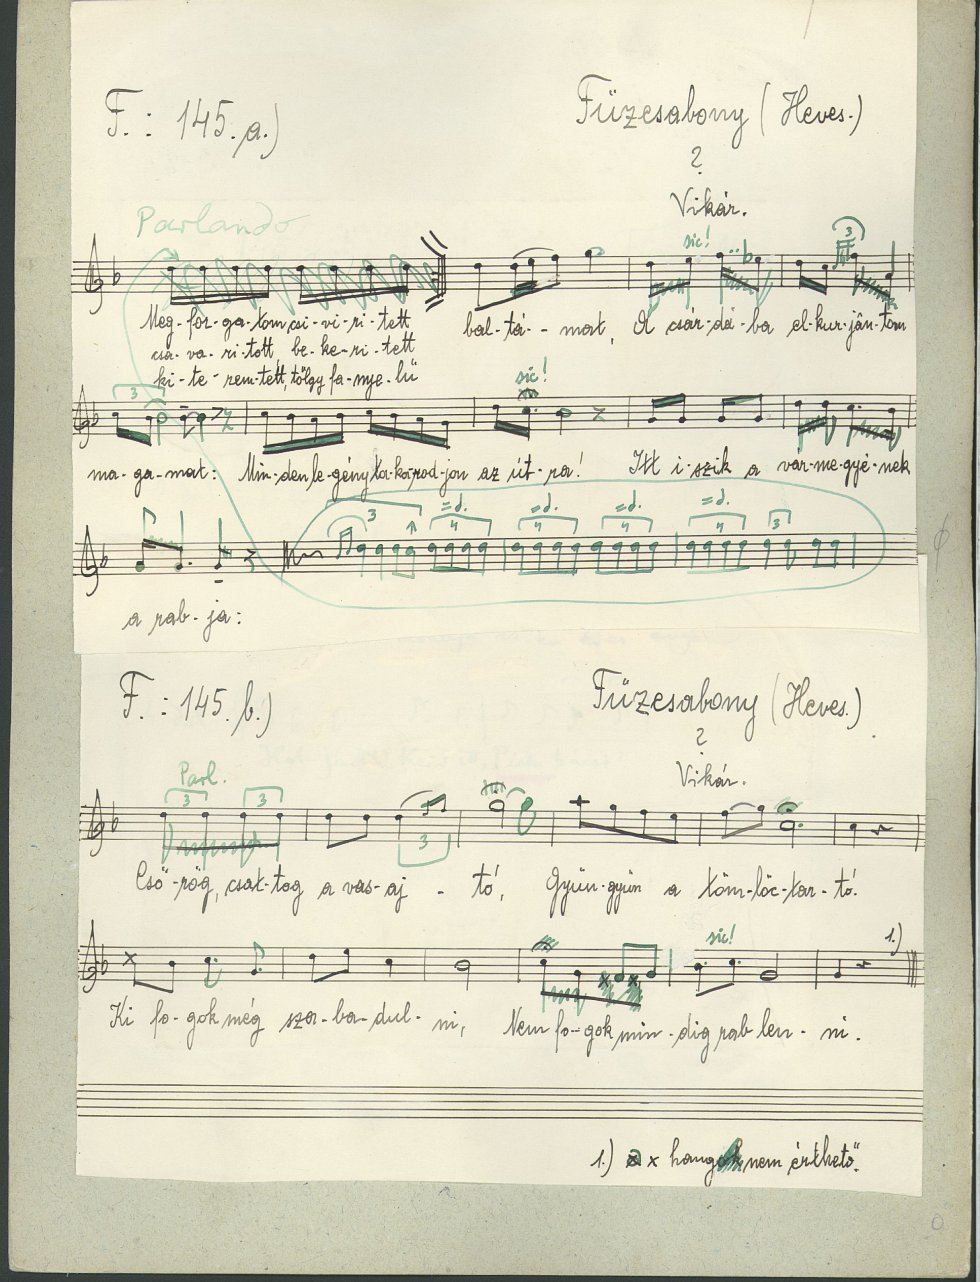 F.: 145. a.)
Füzesabony (Heves.)
?
Vikár.
Parlando
sic!
3
Meg-for-ga-tom, csi-vi-ri-tett bal-tá--mat, A csár-dá-ba el-kur-jân-tom
csa-va-ri-tott, be-ke-ri-tett
ki-te-rem-tett, tölgy fa-nye-lü
3
sic!
ma-ga-mat: Min-den le-gény ta-ka-rod-jon az út-ra! Itt i-szik a vár-me-gyé-nek
3 4 4 4 4 3
a rab-ja:
F.: 145. b.)
Füzesabony (Heves.)
?
Vikár.
Parl.
3 3
3
Csö-rög, csat-tog a vas-aj - tó, Gyün-gyün a töm-löc-tar-tó.
sic!
1.)
Ki fo-gok még sza-ba-dul-ni, Nem fo-gok min-dig rab len-ni.
1.) x hang nem érthető.